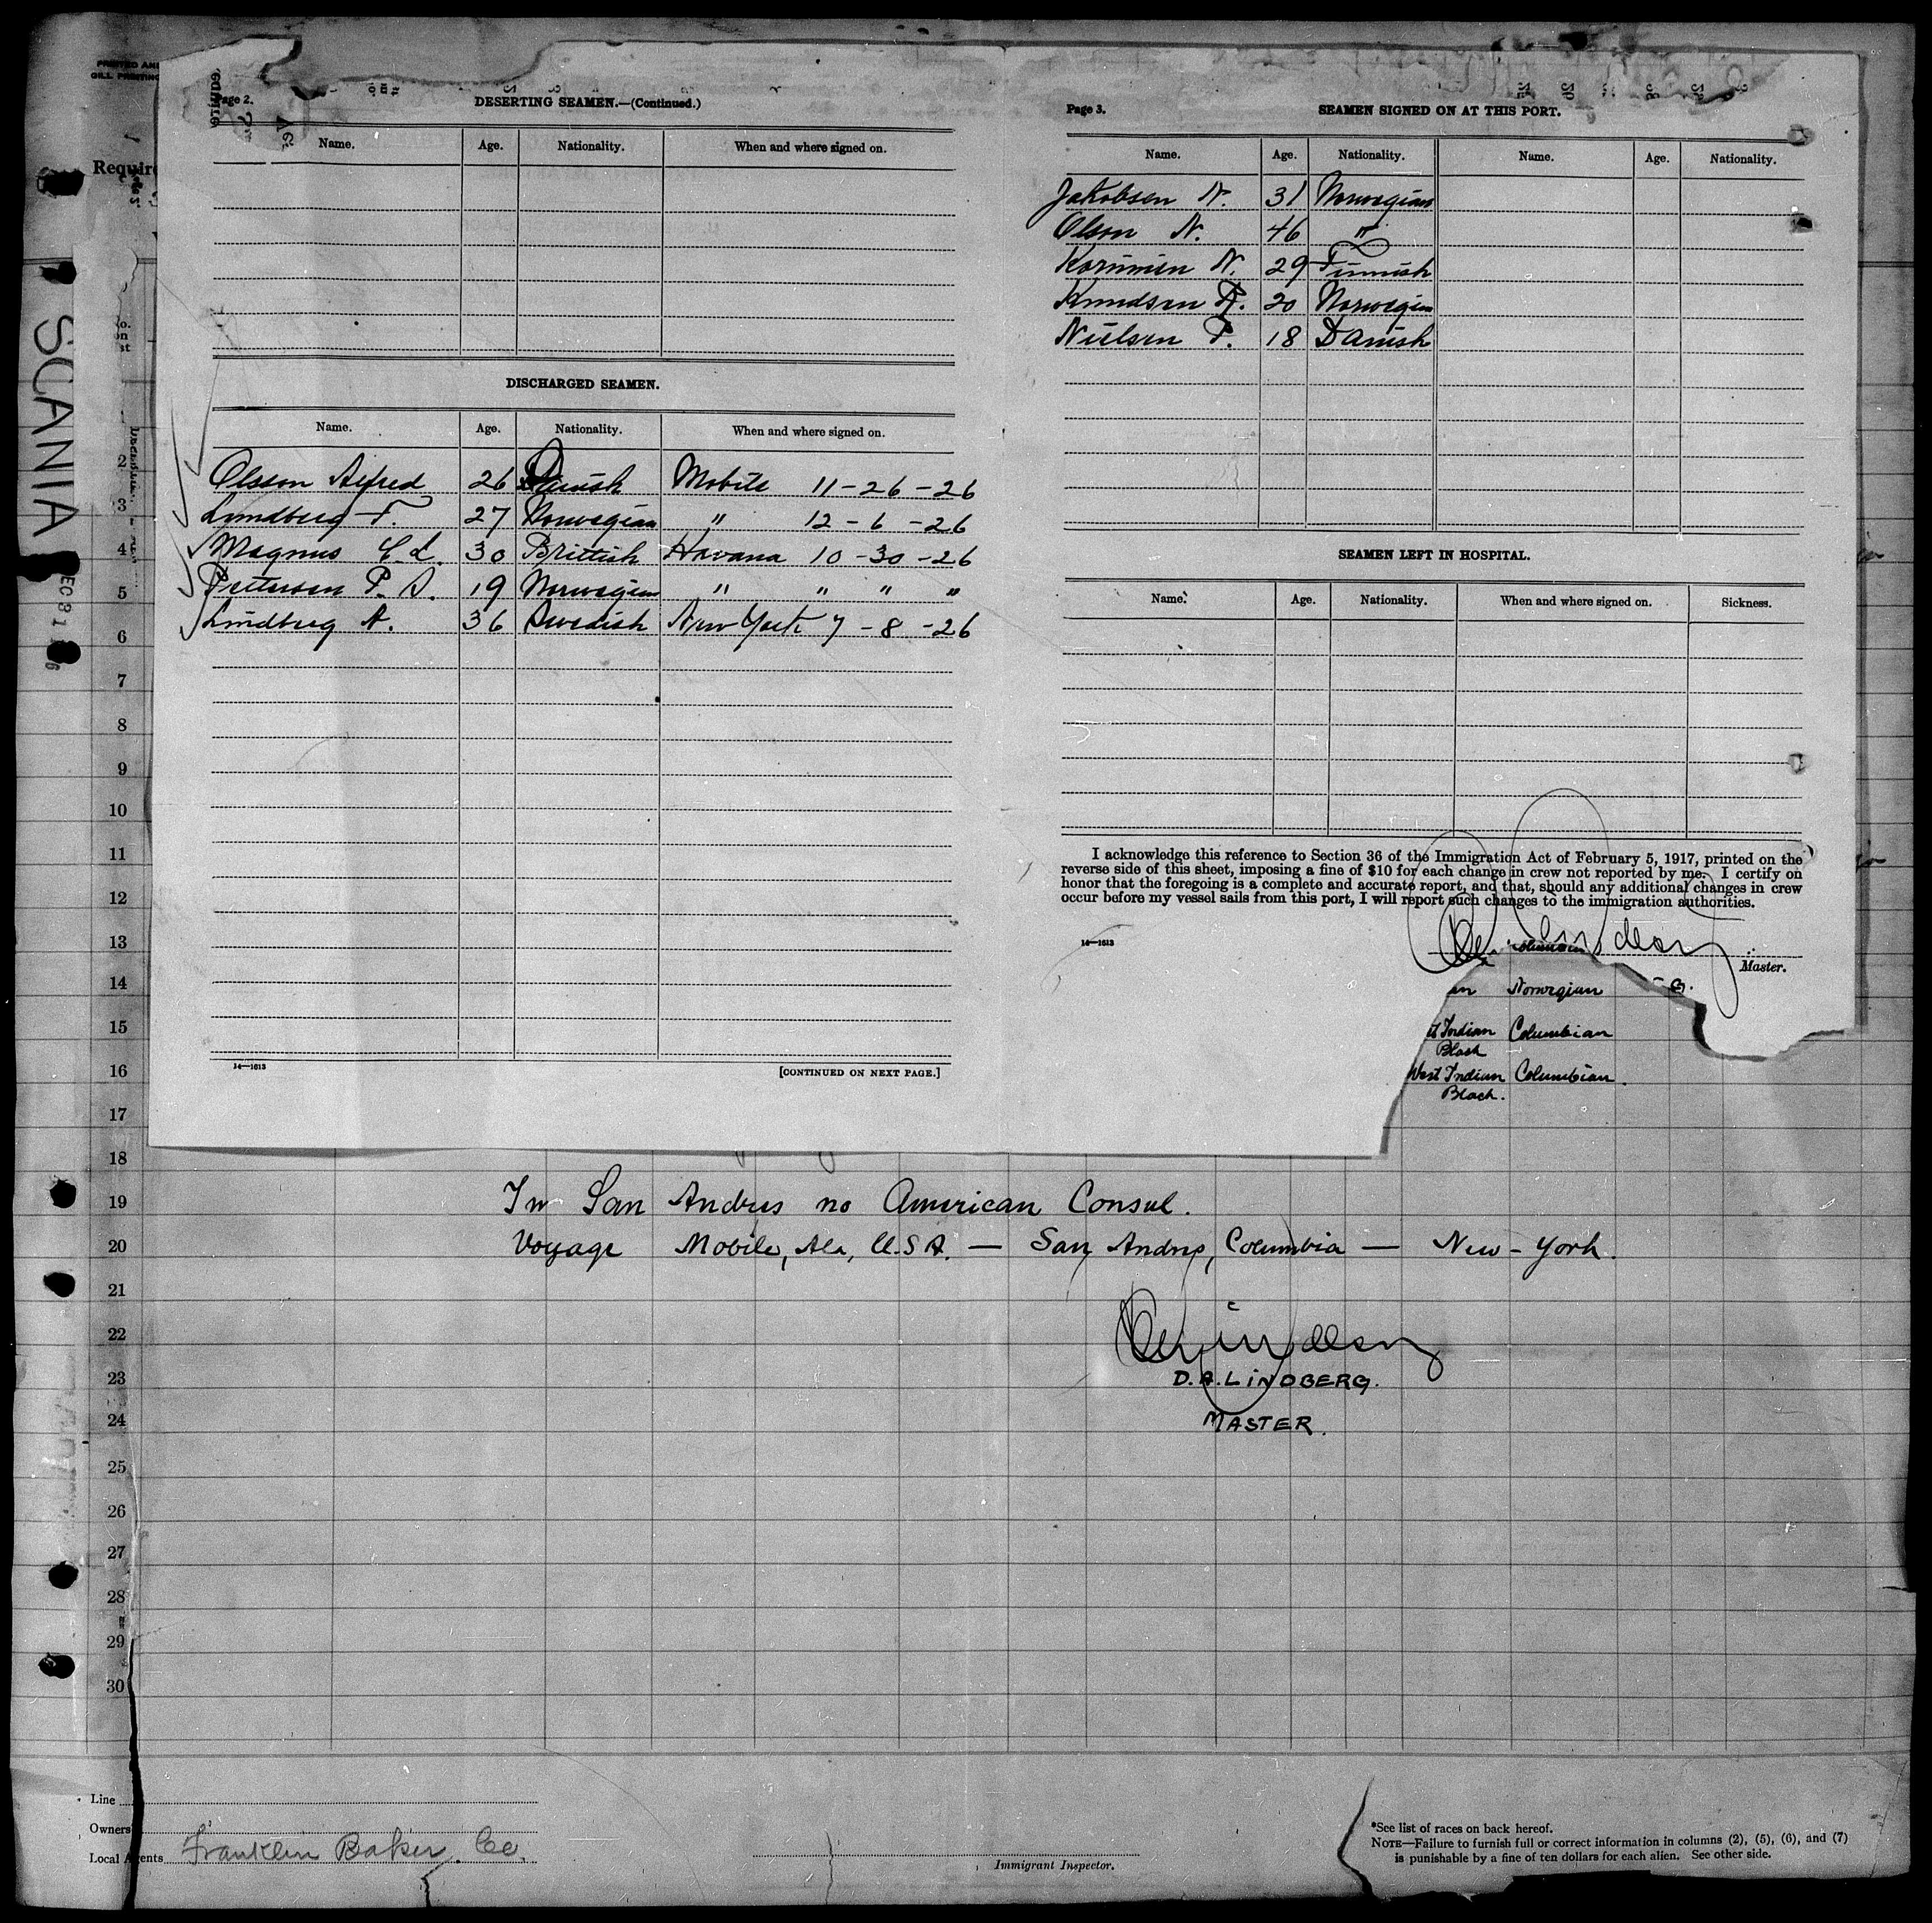 PRINTED AN
GILL PRINTING
Require
SCANIA
Page 2.
DESERTING SEAMEN.—(Continued.)
Name. Age. Nationality. When and where signed on.
DISCHARGED SEAMEN.
Name. Age. Nationality. When and where signed on.
Olsson Alfred 26 Danish Mobile 11-26-26
Lundberg F. 27 Norwegian " 12-6-26
Magnus C. L. 30 Brittish Havana 10-30-26
Pettersen P. S. 19 Norwegian " " " "
Lindberg A. 36 Swedish New York 7-8-26
14—1613
[CONTINUED ON NEXT PAGE.]
Page 3.
SEAMEN SIGNED ON AT THIS PORT.
Name. Age. Nationality. Name. Age. Nationality.
Jakobsen N. 31 Norwegian
Olson N. 46 "
Korninen N. 29 Finnish
Knudsen R. 20 Norwegian
Nielsen P. 18 Danish
SEAMEN LEFT IN HOSPITAL.
Name. Age. Nationality. When and where signed on. Sickness.
I acknowledge this reference to Section 36 of the Immigration Act of February 5, 1917, printed on the
reverse side of this sheet, imposing a fine of $10 for each change in crew not reported by me. I certify on
honor that the foregoing is a complete and accurate report, and that, should any additional changes in crew
occur before my vessel sails from this port, I will report such changes to the immigration authorities.
14—1613
Master.
2
3
4
5
6
7
8
9
10
11
12
13
14 Norwegian
15 Indian Columbian
Black
16 West Indian Columbian.
Black.
17
18
19 In San Andres no American Consul.
20 Voyage Mobile, Ala, U.S.A. — San Andres, Columbia — New-York.
21
22
23 D.A. LINDBERG.
24 MASTER.
25
26
27
28
29
30
Line
Owners
Local Agents Franklin Baker Co.
Immigrant Inspector.
*See list of races on back hereof.
NOTE—Failure to furnish full or correct information in columns (2), (5), (6), and (7)
is punishable by a fine of ten dollars for each alien. See other side.